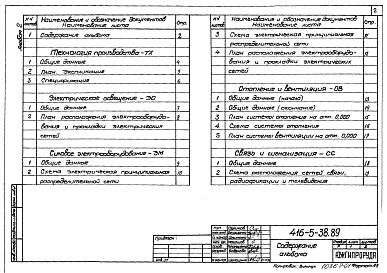 2
Альбом
NN листов
Наименования и обозначение документов
Наименование листа
Стр.
1 Содержание альбома 2
Технология производства - ТХ
1 Общие данные 4
2 План. Экспликация 5
3 Спецификация 6
Электрическое освещение - ЭО
1 Общие данные 7
2 План расположения электрооборудо- 8
вания и прокладки электрических
сетей
Силовое электрооборудование - ЭМ
1 Общие данные 9
2 Схема электрическая принципиальная 10
распределительной сети
NN листов
Наименования и обозначение документов
Наименование листа
Стр.
3 Схема электрическая принципиальная 11
распределительной сети
4 План расположения электрооборудо-
вания и прокладки электрических
сетей
Отопление и вентиляция - ОВ
1 Общие данные (начало) 13
2 Общие данные (окончание) 14
3 План системы отопления на отм. 0,000 15
4 Схема системы отопления 16
5 План системы вентиляции на отм. 0,000 17
Связь и сигнализация - СС
1 Общие данные 18
2 Схема расположения сетей связи,
радиофикации и телевидения
Привязан:
416-5-38.89
Содержание
альбома
Копировал:
Формат